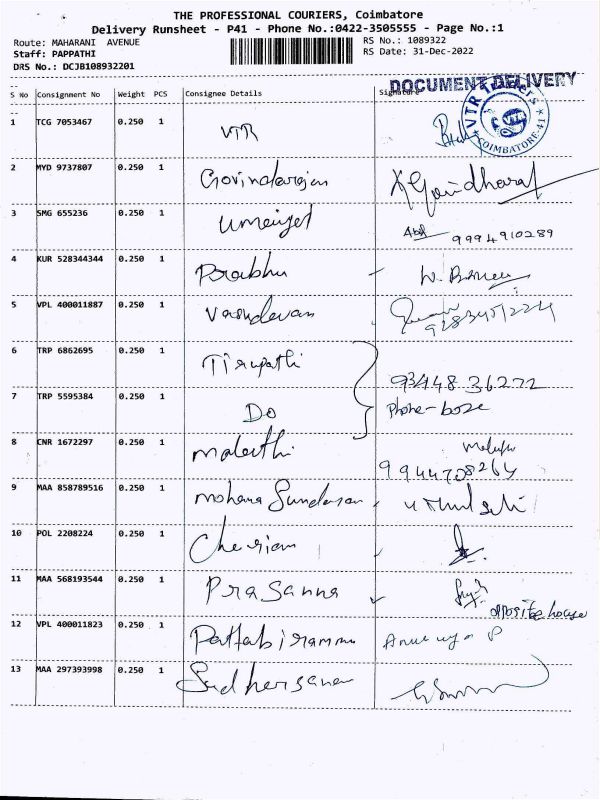 THE PROFESSIONAL COURIERS, Coimbatore
Delivery Runsheet - P41 - Phone No.:0422-3505555 - Page No.:1
Route: MAHARANI AVENUE RS No.: 1089322
Staff: PAPPATHI RS Date: 31-Dec-2022
DRS No.: DCJB108932201
DOCUMENT DELIVERY
S No Consignment No Weight PCS Consignee Details Signature
VTR Traders
VTR
COIMBATORE-41
1 TCG 7053467 0.250 1 VTR
2 MYD 9737807 0.250 1 Govindarajan
3 SMG 655236 0.250 1
9994910289
4 KUR 528344344 0.250 1 Prabhu
5 VPL 400011887 0.250 1 Vasudevan
6 TRP 6862695 0.250 1 Tirupathi
93448 36272
7 TRP 5595384 0.250 1 Do
8 CNR 1672297 0.250 1 malathi
9944708264
9 MAA 858789516 0.250 1 mohana Sundaram
10 POL 2208224 0.250 1 Cherian
11 MAA 568193544 0.250 1 Prasanna
opposite house
12 VPL 400011823 0.250 1 Pattabiramma
13 MAA 297393998 0.250 1 Sudhersanan